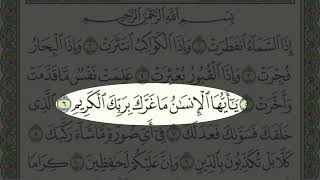 بِسْمِ اللَّهِ الرَّحْمَٰنِ الرَّحِيمِ
إِذَا السَّمَاءُ انفَطَرَتْ ١ وَإِذَا الْكَوَاكِبُ انتَثَرَتْ ٢ وَإِذَا الْبِحَارُ
فُجِّرَتْ ٣ وَإِذَا الْقُبُورُ بُعْثِرَتْ ٤ عَلِمَتْ نَفْسٌ مَّا قَدَّمَتْ
وَأَخَّرَتْ ٥ يَا أَيُّهَا الْإِنسَانُ مَا غَرَّكَ بِرَبِّكَ الْكَرِيمِ ٦ الَّذِي
خَلَقَكَ فَسَوَّاكَ فَعَدَلَكَ ٧ فِي أَيِّ صُورَةٍ مَّا شَاءَ رَكَّبَكَ ٨
كَلَّا بَلْ تُكَذِّبُونَ بِالدِّينِ ٩ وَإِنَّ عَلَيْكُمْ لَحَافِظِينَ ١٠ كِرَامًا